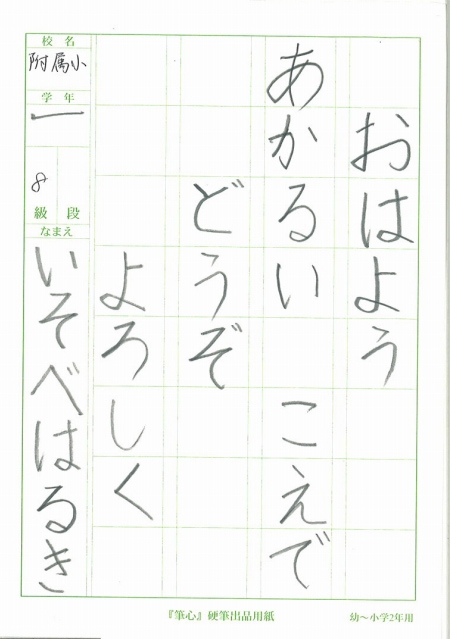 おはよう
あかるい　こえで
どうぞ
よろしく
校名
附属小
学年
一
8
級 段
なまえ
いそべはるき
『筆心』硬筆出品用紙
幼～小学2年用